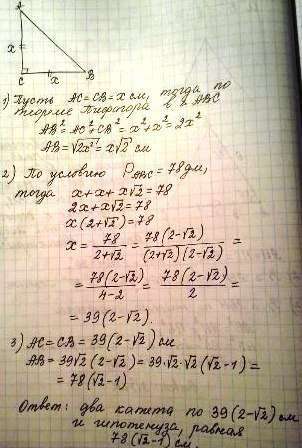 A
x
C
x
B
1) Пусть AC = CB = x см, тогда по
теореме Пифагора в △ABC
AB² = AC² + CB² = x² + x² = 2x²
AB = √2x² = x√2 см
2) По условию P_ABC = 78 дм,
тогда x + x + x√2 = 78
2x + x√2 = 78
x(2+√2) = 78
x = 78/(2+√2) = 78(2-√2)/((2+√2)(2-√2)) =
= 78(2-√2)/(4-2) = 78(2-√2)/2 =
= 39(2-√2).
3) AC = CB = 39(2-√2) см
AB = 39√2(2-√2) = 39·√2·√2(√2-1) =
= 78(√2-1)
Ответ: два катета по 39(2-√2) см
и гипотенуза, равная
78(√2-1) см.